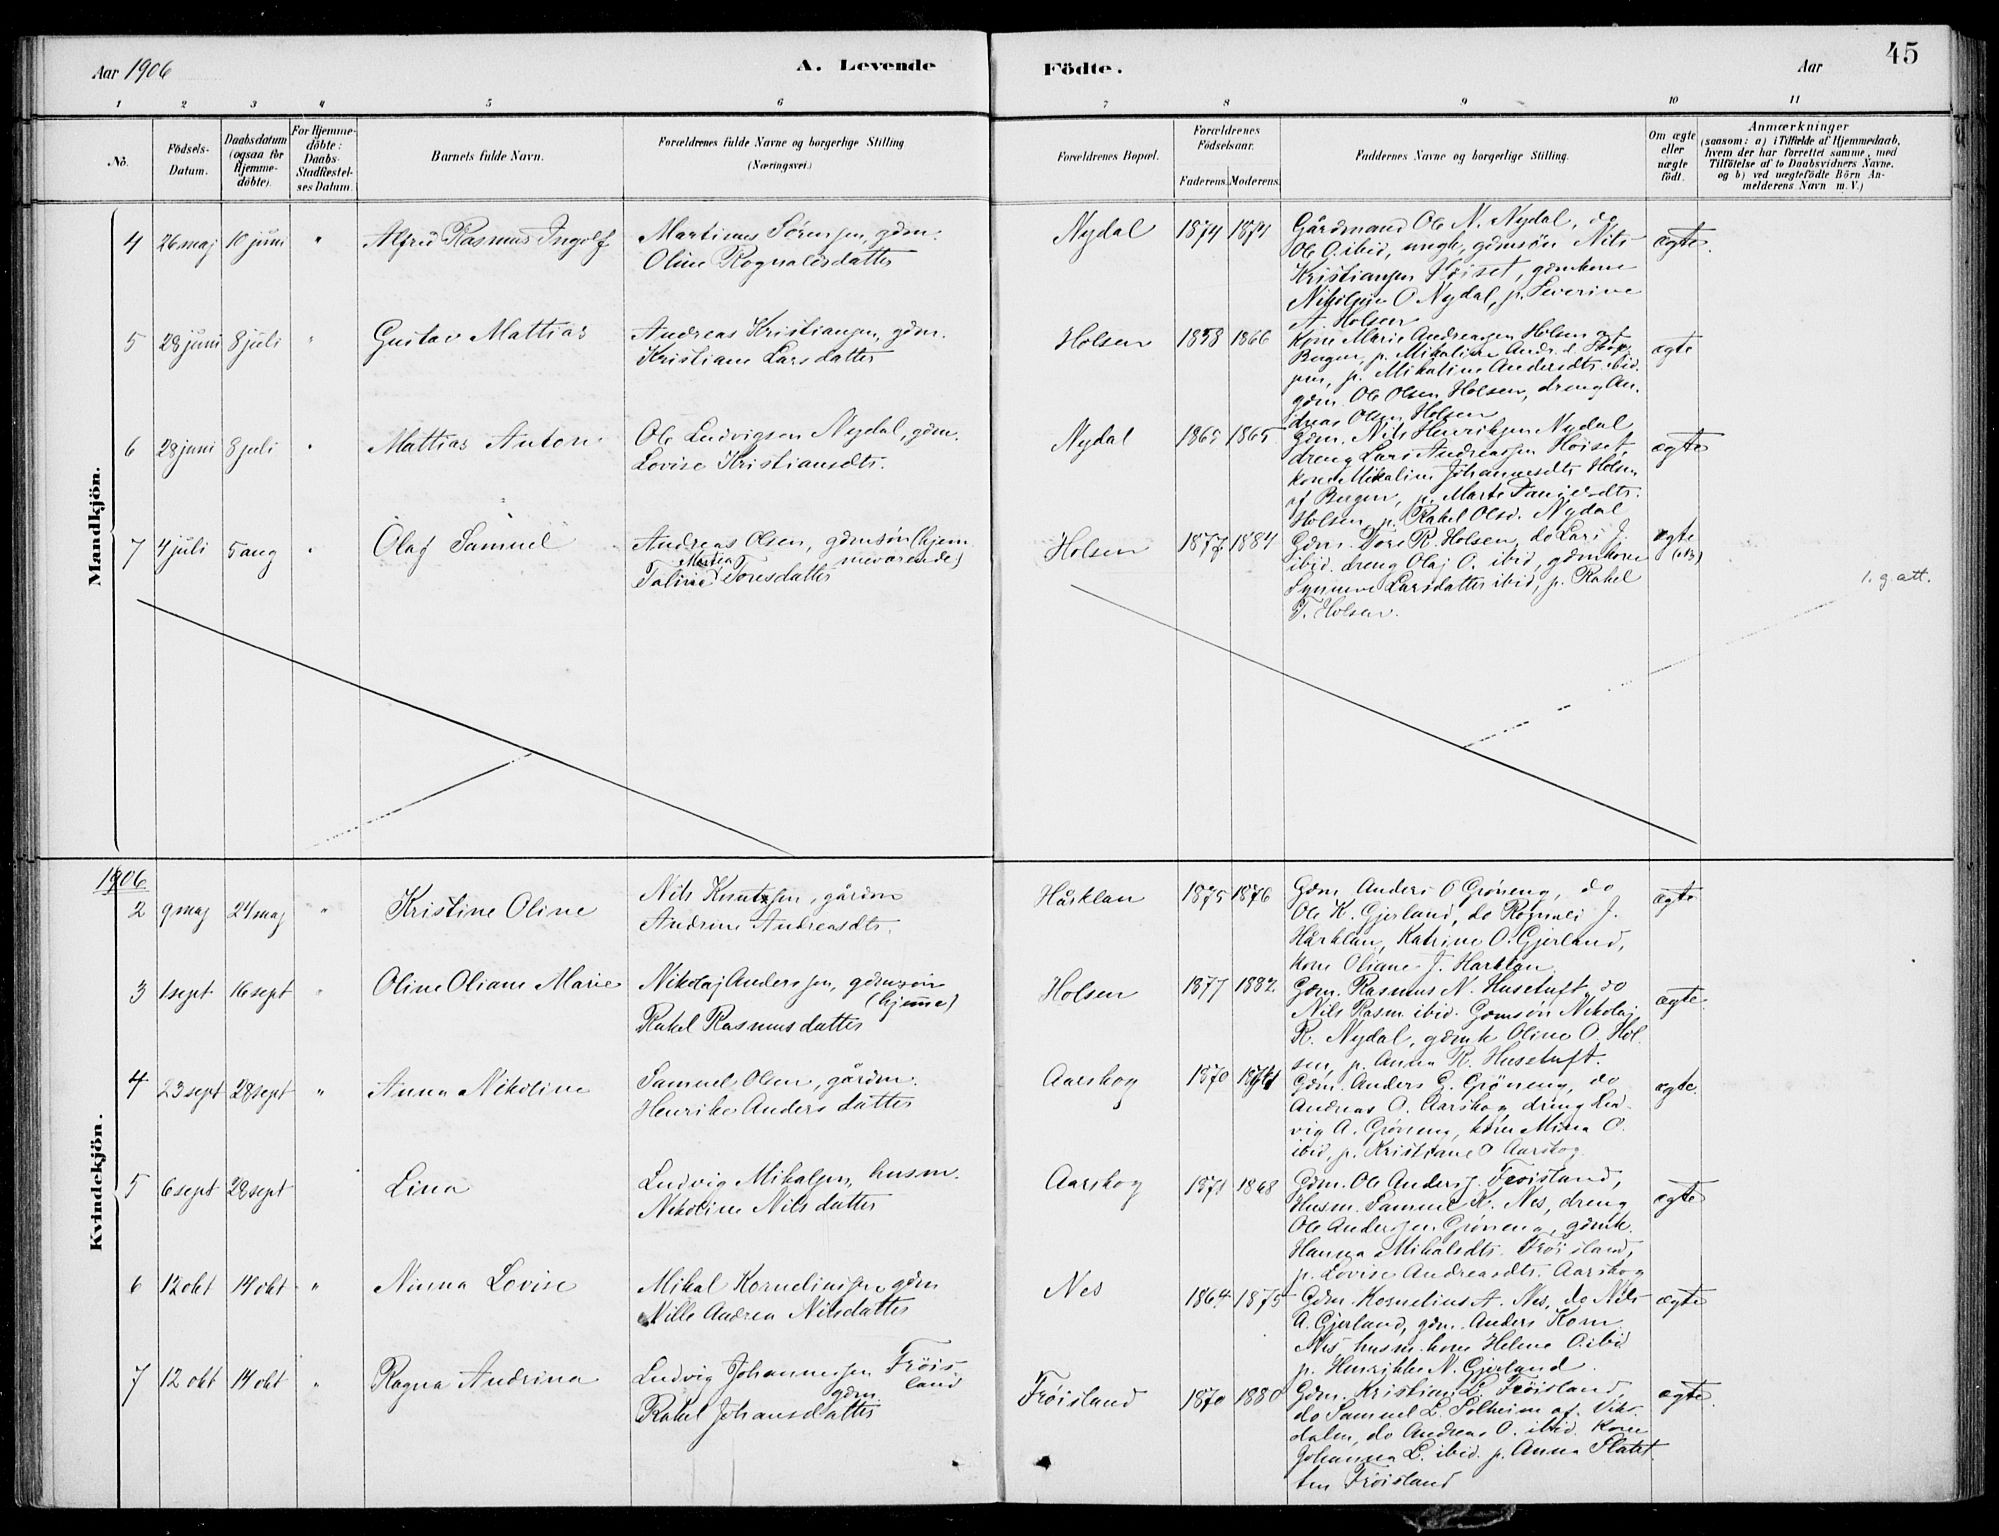 Aar 1906
A. Levende
Födte.
Aar
45
1 2 3 4 5 6 7 8 9 10 11
No.
Födsels-
Datum.
Daabsdatum
(ogsaa for
Hjemme-
döbte).
For Hjemme-
döbte:
Daabs-
Stadfæstel-
ses Datum.
Barnets fulde Navn.
Forældrenes fulde Navne og borgerlige Stilling
(Næringsvei.)
Forældrenes Bopæl.
Forældrenes
Födselsaar.
Faderens. Moderens.
Faddernes Navne og borgerlige Stilling.
Om ægte
eller
uægte
födt.
Anmærkninger
(saasom: a) i Tilfælde af Hjemmedaab,
hvem der har forrettet samme, med
Tilföielse af to Daabsvidners Navne.
og b) ved uægtefödte Börn An-
melderens Navn m. V.)
Mandkjön.
4 26 maj 10 juni " Alfred Rasmus Ingolf
Martinus Sörensen, gdm.
Oline Rognaldsdatter
Nydal 1874 1871
Gårdmand Ole N. Nydal, do
Ole O. ibid, ungk, gdmsön Nils
Kristiansen Höiset, gdmkone
Nikoline O Nydal, p. Severine
A. Holsen
ægte.
5 28 juni 8 juli " Gustav Mattias
Andreas Kristiansen, gdm.
Kristiane Larsdatter
Holsen 1858 1866
Kone Marie Andreasen Holsen af
Bergen, p. Mikaline Andr. d.
p. Mikaline Andersdtr. ibid.
gdm. Ole Olsen Holsen, dreng An-
dreas Olsen Holsen
ægte
6 28 juni 8 juli " Mattias Anton
Ole Ludvigsen Nydal, gdm.
Lovise Kristiansdtr.
Nydal 1865 1865
Gdm. Nils Henriksen Nydal
dreng Lars Andreassen Höiset,
kone Mikaline Johannesdtr Holsen
af Bergen, p. Marte Danielsdtr.
Holsen, p. Rakel Olsd. Nydal
ægte
7 4 juli 5 aug " Olaf Samuel
Andreas Olsen, gdmsön (hjem
meværende)
Maria
Taline Toresdatter
Holsen 1877 1884
Gdm. Tore R. Holsen, do Lars J.
ibid. dreng Olaj O. ibid, gdmkone
Synneve Larsdatter ibid, p. Rakel
T. Holsen.
ægte
1. g. att.
1906
Kvindekjön.
2 9 maj 24 maj " Kristine Oline
Nils Knutssen, gårdm
Andrine Andreasdtr.
Hårklau 1875 1876
Gdm. Anders O Gröneng, do
Ole K. Gjerland, do Rognald J.
Hårklau, Katrine O. Gjerland,
kone Oliane J. Harklau
ægte
3 1 sept 16 sept " Oline Oliane Marie
Nikolaj Anderssen, gdmsön
(hjemme)
Rakel Rasmusdatter
Holsen 1877 1882
Gdm. Rasmus N. Husetuft, do
Nils Rasm. ibid. Gdmsön Nikolaj
R. Nydal, gdmk Oline O. Hol-
sen, p. Anna R. Husetuft.
ægte
4 23 sept 28 sept " Anna Nikoline
Samuel Olsen, gårdm.
Henrike Andersdatter
Aarskog 1870
Gdm. Anders G. Gröneng, do
Andreas O. Aarskog, dreng Lud-
vig A. Gröneng, kone Mina O.
ibid, p. Kristiane O Aarskog
ægte.
5 6 sept 28 sept Lina
Ludvig Mikalsen, husm.
Nikoline Nilsdatter
Aarskog 1871 1868
Gdm. Ole Anders J. Fröisland,
Husm. Samuel K. Nes, dreng
Ole Andersen Gröneng, gdmk.
Hanna Mikalsdtr. Fröisland,
p. Lovise Andreasdtr. Aarskog
ægte
6 12 okt 14 okt " Ninna Lovise
Mikal Korneliussen gdm
Nille Andrea Nilsdatter
Nes 1864 1875
Gdm. Kornelius A. Nes, do Nils
A. Gjerland, gdm. Anders Korn.
Nes, husm. kone Helene O. ibid
p. Henrikke N. Gjerland.
ægte
7 12 okt 14 okt " Ragna Andrina
Ludvig Johannessen Fröis-
land
gdm
Rakel Johansdatter
Fröisland 1870 1880
Gdm. Kristian L. Fröisland,
do Samuel L. Solheim af Viks-
dalen, do Andreas O. ibid. Kone
Johanna L. ibid. p. Anna Slatt-
ten Fröisland
ægte.